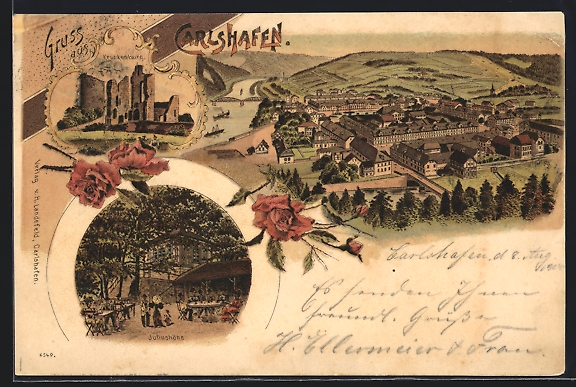 Gruss
aus
CARLSHAFEN.
Kruckenburg.
Verlag v. H. Landefeld, Carlshafen.
Juliushöhe
6549.
Carlshafen, d 8. Aug.
Es senden Ihnen
freundl. Grüße
H. Ellermeier & Frau.